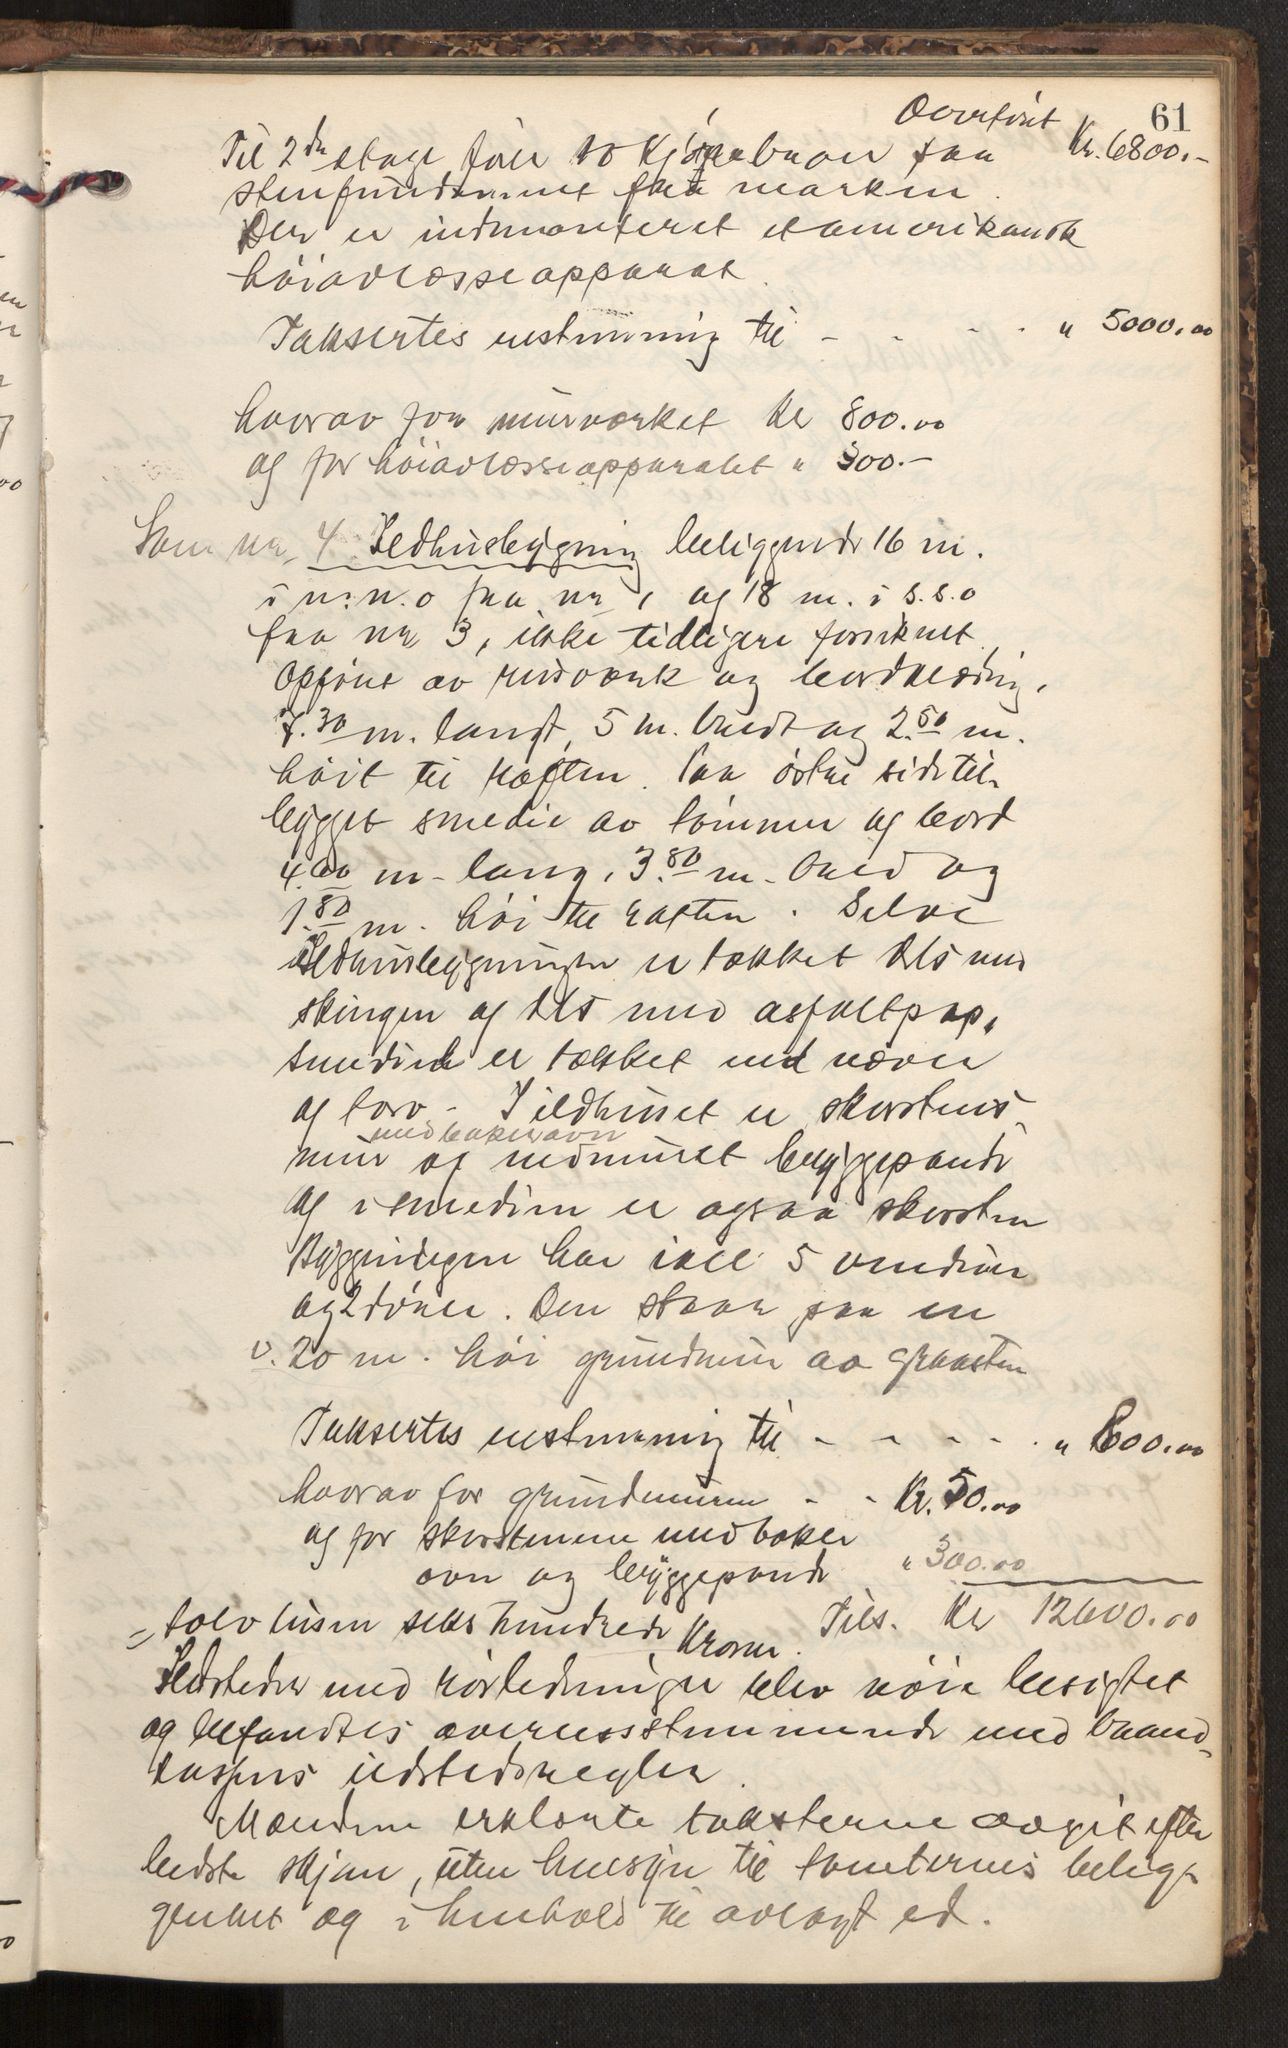 61
Overført
Til 2den etage fører to kjørebruer fra Kr. 6800.-
stenfundament fra marken.
Der er indmonteret et amerikansk
høiavlæsseapparat.
Taksertes enstemmig til - - - - " 5000.00
hvorav for murværket Kr 800.00
og for høiavlæsseapparatet " 300.-
Som nr. 4 Ildhusbygning beliggende 16 m.
i n.n.o fra nr 1 og 18 m. i s.s.o
fra nr 3, ikke tidligere forsikret,
opført av reisværk og bordklædning,
7.30 m. langt, 5 m. bredt og 2.50 m.
høit til raften. Paa østre side til-
bygget smedie av tømmer og bord
4.00 m. lang, 3.80 m. bred og
1.80 m. høi til raften. Selve
ildhusbygningen er tækket dels med
skingen og dels med asfaltpap,
smedien er tækket med næver
og torv. - I ildhuset er skorstens
med bakerovn
mur og indmuret bryggepande
og i smedien er ogsaa skorsten
Bygningen har ialt 5 vinduer
og 2 dører. Den staar paa en
0.20 m. høi grundmur av graasten
Taksertes enstemmig til - - - - - " 800.00
hvorav for grundmuren - - Kr. 50.00
og for skorstenene med baker
ovn og bryggepande " 300.00
= tolv tusen seks hundrede Kroner. Tils. Kr 12600.00
Ildsteder med rørledninger blev nøie besigtet
og befandtes overensstemmende med brand-
kassens ildstedsregler.
Mændene erklærte taksterne avgit efter
bedste skjøn, uten hensyn til tomternes belig-
genhet og i henhold til avlagt ed.